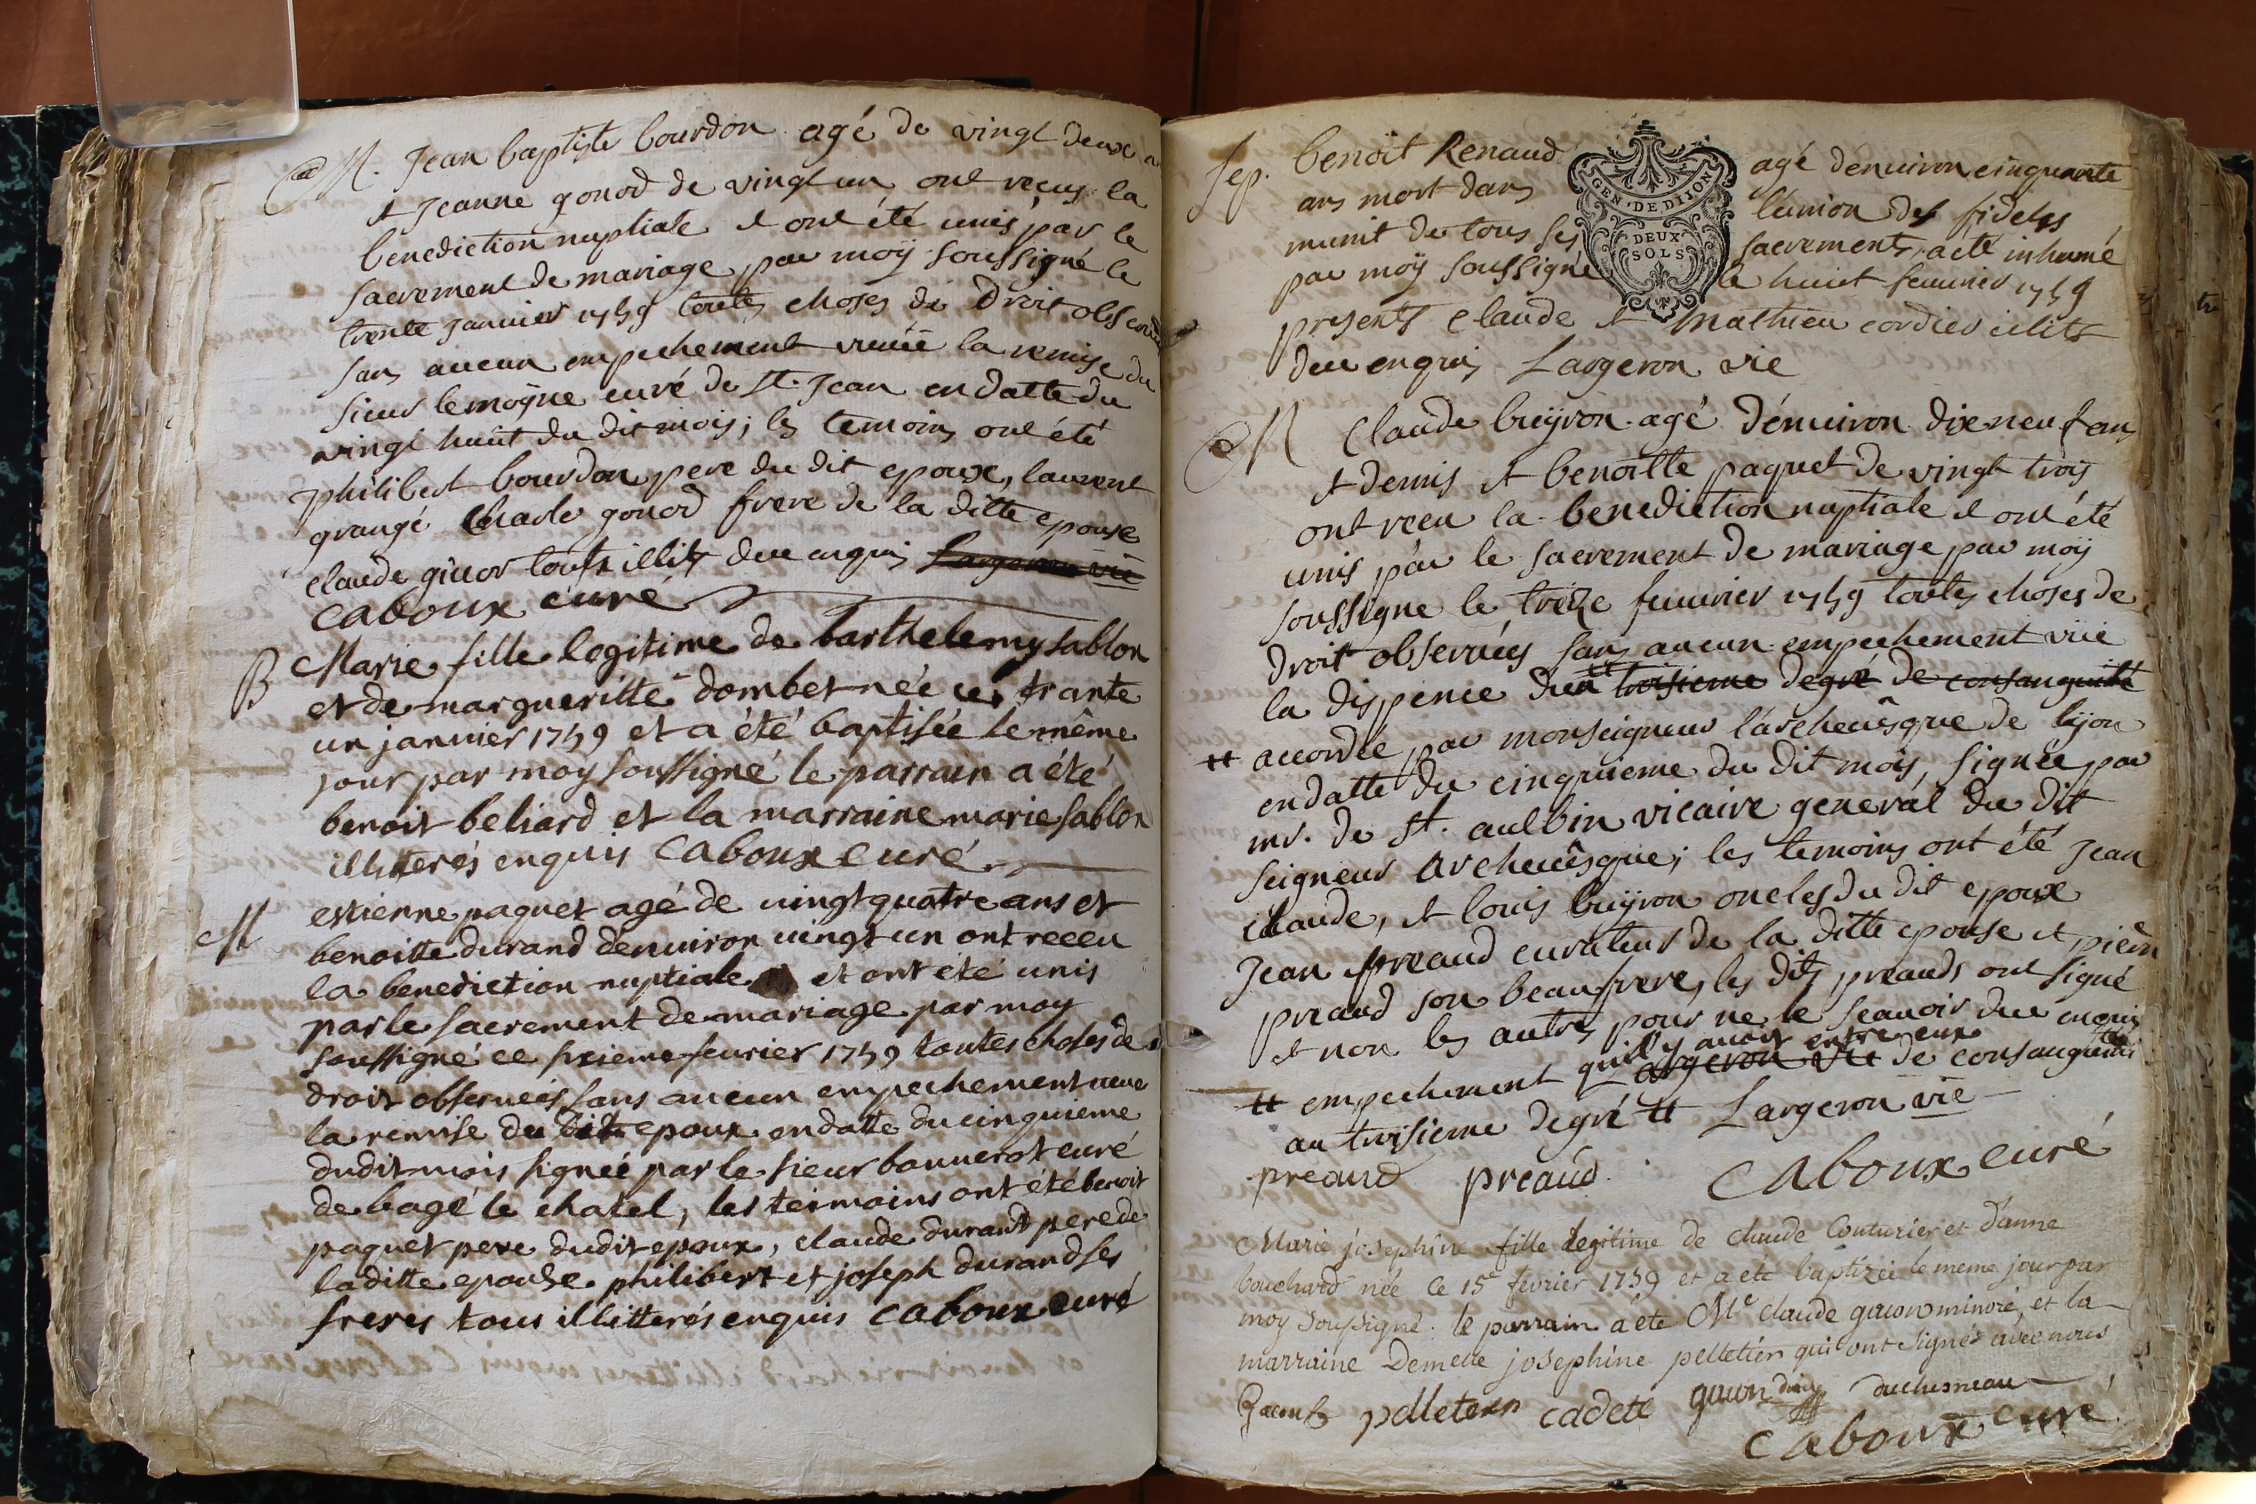 M. Jean baptiste bourdon agé de vingt deux a
et Jeanne gonod de vingt un ont recus la
benediction nuptiale et ont été unis par le
sacrement de mariage par moÿ soussigné le
trente Januier 1759 toutes choses de droit obserués
sans aucun empechement vuüe la remise du
sieur lemoÿne curé de st. Jean en datte du
vingt huit du dit mois; les temoins ont été
philibert bourdon pere du dit epoux, laurent
grangé Charle gonod frere de la ditte epouse
claude giuor touts illits deu enquis Largeron vic
caboux curé
B Marie fille legitime de barthelemy sablon
et de margueritte dombet née le trante
un januier 1759 et a été baptisée le même
jour par moy soussigné le parrain a été
benoit beliard et la marraine marie sablon
illiterés enquis caboux curé
M estienne paquet agé de uingt quatre ans et
benoitte durand denuiron uingt un ont receu
la benediction nuptiale et ont été unis
par le sacrement de mariage par moy
soussigné ce sixieme feurier 1759 toutes choses de
droit obseruées sans aucun empechement ueue
la remise du dit epoux en datte du cinquieme
dudit mois signée par le sieur bonnerot curé
de bagé le chatel, les temoins ont été benoit
paquet pere dudit epoux, claude durant pere de
laditte epouse philibert et joseph durand ses
freres tous illitterés enquis caboux curé
Sep. benoit Renaud agé denuiron cinquante
ans mort dans l'union des fideles
munit de tous ses sacrements, a eté inhumé
par moÿ soussigné le huit feuurier 1759
presents Claude et Mathieu cordier illits
deu enquis Largeron vic
GEN. DE DIJON
DEUX
SOLS
M Claude buÿron agé d'enuiron dix neuf ans
et demis et benoitte paquet de vingt trois
ont receu la benediction nuptiale et ont été
unis par le sacrement de mariage par moÿ
soussigne le treize feuurier 1759 toutes choses de
droit obseruées sans aucun empechement vüe
la dispence du tt troisieme degré de consanguinité
tt accordée par monseigneur l'archeuêsque de lijon
en datte du cinquieme du dit mois, signée par
mr. de st. aulbin vicaire general du dit
seigneur archeuêsque; les temoins ont été Jean
claude, et louis buÿron oncles du dit epoux
Jean preaud curateur de la ditte epouse et pierre
preaud son beaufrere, les dits preauds ont signé
et non les autres pour ne le scauoir deu enquis
tt empechement qu'il y auoit entre eux de consanguinité
au troisieme degré tt Largeron vic
preaud preaud. caboux curé
Marie josephine fille legitime de claude Couturier et d'anne
bouchard née le 15e fevrier 1759 et a eté baptizée le meme jour par
moy soussigné. le parrain a été Me claude gacon minoré, et la
marraine Demelle josephine pelletier qui ont signés avec nous
pelleterr cadete gacon duchesneau
caboux curé